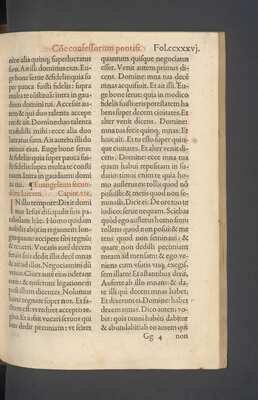 Cõe confessorum pontifi. Fol.ccxxxvj.
nice alia quinq; superlucratus
sum. Ait illi dominus eius. Eu
ge bone serue & fidelis: quia su
per pauca fuisti fidelis: supra
multa te constituã: intra in gau
dium domini tui. Accessit au
tem & qui duo talenta accepe
rat & ait. Domine duo talenta
tradidisti mihi: ecce alia duo
lucratus sum. Ait illi do
minus eius. Euge bone serue
& fidelis: quia super pauca fui
sti fidelis supra multa te consti
tuam: intra in gaudium domi
ni tui. ¶ Euangelium secun
dum Lucam. Capi.
IN illo tempore: Dixit domi
nus Iesus discipulis suis pa-
rabolam hãc. Homo quidam
nobilis abijt in regionem lon-
ginquam: accipere sibi regnũ
& reuerti. Vocatis autem decem
seruis suis dedit illis decẽ mnas
& ait ad illos. Negociamini dũ
venio. Ciues autẽ eius oderant
eum: & miserunt legationem
post illum dicentes. Nolumus
hunc regnare super nos. Et fa-
ctum est: vt rediret accepto re-
gno. Et iussit vocari seruos qui
bus dedit pecuniam: vt sciret
quantum quisque negociatus
esset. Venit autem primus di
cens. Domine: mna tua decẽ
mnas acquisiuit. Et ait illi. Eu-
ge bone serue: quia in modico
fidelis fuisti: eris potestatem ha
bens super decem ciuitates. Et
alter venit dicens. Domine:
mna tua fecit quinq; mnas. Et
huic ait. Et tu esto super quinq;
ciuitates. Et alter venit di-
cens. Domine: ecce mna tua
quam habui repositam in su-
dario: timui enim te quia ho
mo austerus es: tollis quod nõ
posuisti: & metis quod non se-
minasti. Dicit ei. De ore tuo te
iudico: serue nequam. Sciebas
quod ego austerus homo sum:
tollens quod non posui & me-
tens quod non seminaui: &
quare non dedisti pecuniam
meam ad mensam: & ego ve-
niens cum vsuris vtiq; exegis-
sem illam? Et astantibus dixit.
Auferte ab illo mnam: & da-
te illi qui decem mnas habet.
Et dixerunt ei. Domine: habet
decem mnas. Dico autem vo-
bis: quia omni habẽti dabitur
& abundabit: ab eo autem qui
Gg 4 non